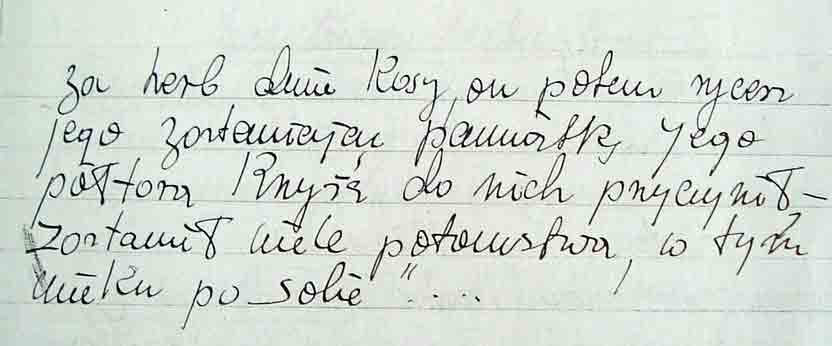 za herb dwie Kosy, on potem rycerz
jego zostawiając pamiątkę jego
półtora Krzyża do nich przyczynił –
zostawił wiele potomstwa, w tym
wieku po sobie "....